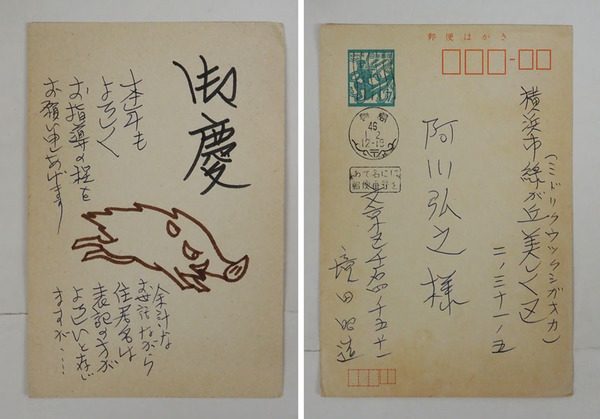 御慶
本年も
よろしく
お指導の程を
お願い申しあげます
余計な
お世話ながら
住居名は
表記の方が
よろしいと存じ
ますが……
郵便はがき
7
46
1.2
12-18
あて名にに
郵便番号を
横浜市緑が丘美しく区
(ミドリクウツクシガオカ)
二ノ三十一ノ五
阿川弘之様